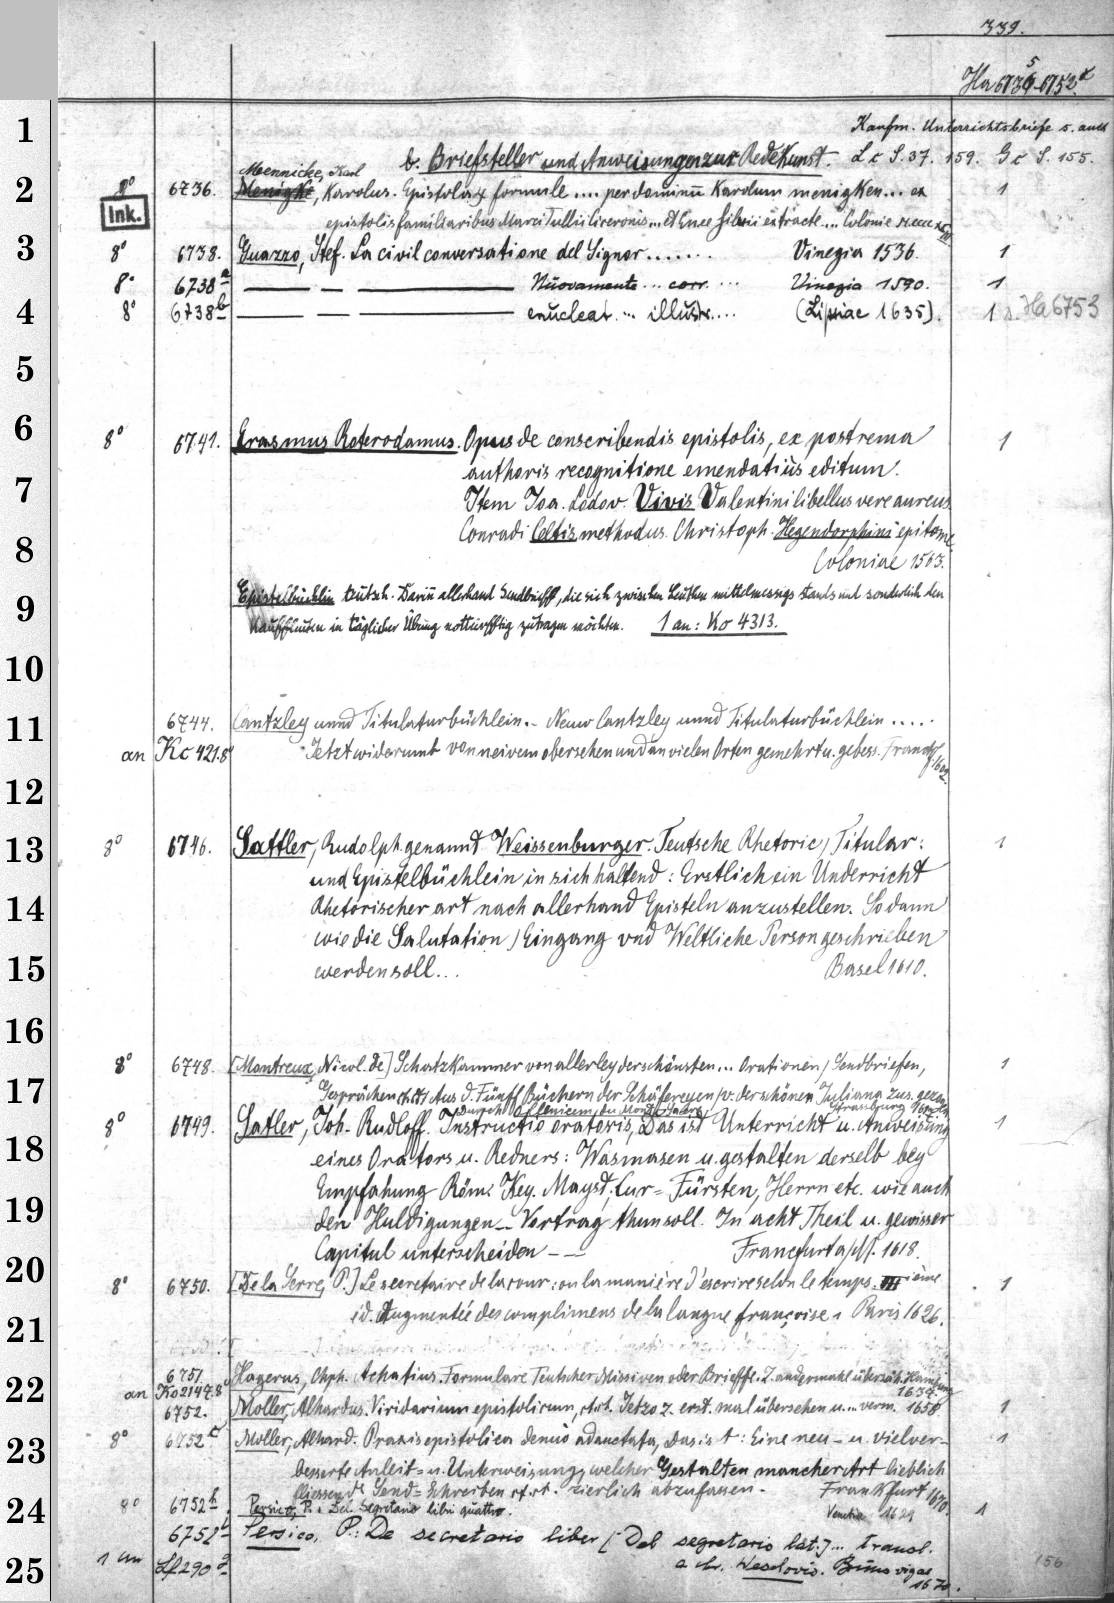 339.
Ha 6736-6752
Kaufm. Unterrichtsbriefe s. auch
b. Briefsteller und Anweisungen zur Redekunst. L c S. 37. 159. G c S. 155.
1
Mennicke, Karl
2 8° 6736. Menigke, Karolus. Epistolare formule .... per dominū Karolum menigken... ex 1
Ink. epistolis familiaribus Marci Tullii Ciceronis... et Enee Silvii extracte... Colonie
3 8° 6738. Guazzo, Stef. La civil conversatione del Signor ....... Vinegia 1536. 1
8° 6738a — — — Nuovamente ... corr. ... Vinegia 1590. 1
4 8° 6738b — — — enucleat. ... illustr.... (Lipsiae 1635). 1 s. Ha 6753
5
6 8° 6741. Erasmus Roterodamus. Opus de conscribendis epistolis, ex postrema 1
authoris recognitione emendatius editum.
7 Item Joa. Lodov. Vivis Valentini libellus vere aureus.
Conradi Celtis methodus. Christoph. Hegendorphini epitome
8 Coloniae 1563.
9 Epistelbüchlin teutsch. Darin allerhand Sendbrieff, die sich zwischen Leuthen mittelmessigs stands und sonderlich den
Kauffleuten in täglicher Übung notturfftig zutragen möchten. 1 an: Ko 4313.
10
11 6744. Cantzley unnd Titulaturbüchlein. - Neuw Cantzley unnd Titulaturbüchlein .....
an Kc 421.8° Jetzt widerumb von neiwem obersehen und an vielen Orten gemehrt u. gebess. Franckf. 1602.
12
13 8° 6746. Sattler, Rudolph genannt Weissenburger. Teutsche Rhetoric / Titular: 1
und Epistelbüchlein in sich haltend: Erstlich ein Underricht
14 Rhetorischer art nach allerhand Episteln anzustellen. So dann
wie die Salutation / Eingang vnd Weltliche Person geschrieben
15 werden soll... Basel 1610.
16
8° 6748. [Montreux, Nicol. de] Schatzkammer von allerley der schönsten... Orationen / Sendbriefen, 1
17 Gesprächen etc. Aus d. Fünff Büchern der Schäfereyen / v. der schönen Juliana zus. gezogen
durch Ollenicem du Mont Sacre. Strassburg
8° 6749. Satler, Joh. Rudloff. Instructio oratoris, Das ist Unterricht u. Anweisung 1
18 eines Orators u. Redners: Wasmasen u. gestalten derselb bey
Empfahung Röm. Key. Mayst. Cur= Fürsten, Herrn etc. wie auch
19 den Huldigungen — Vortrag thun soll. In acht Theil u. gewisser
Capitul unterscheiden — — Francfurt a/M. 1618.
20 8° 6750. [De la Serre, P.] Le secretaire de la cour: ou la manière d'escrire selon le temps. VIIième 1
éd. Augmentée des complimens de la langue françoise. Paris 1626.
21
6751 Hagerus, Chph. Achatius. Formulare Teutscher Missiven oder Brieffe. Z. andermahl überseh. Hamburg
22 an Ko 2147.8° 1634.
6752. Moller, Alhardus. Viridarium epistolicum, etc. Jetzo z. erst. mal übersehen u... verm. 1658 1
23 8° 6752c Moller, Alhard. Praxis epistolica denuo adauctata, das ist: Eine neu- u. vielver- 1
besserte Anleit= u. Unterweisung, welcher Gestalten mancher Art lieblich
fliessende Send= Schreiben etc. zierlich abzufassen. Frankfurt 1670.
24 8° 6752h Persico, P.: Del Segretario libri quattro. Venetia 1629 1
6752i Persico, P.: De secretario liber [Del segretario lat.] ... transl.
25 1 an Lf 290 a Chr. Weselovio. Brunsvigae 156
1670.